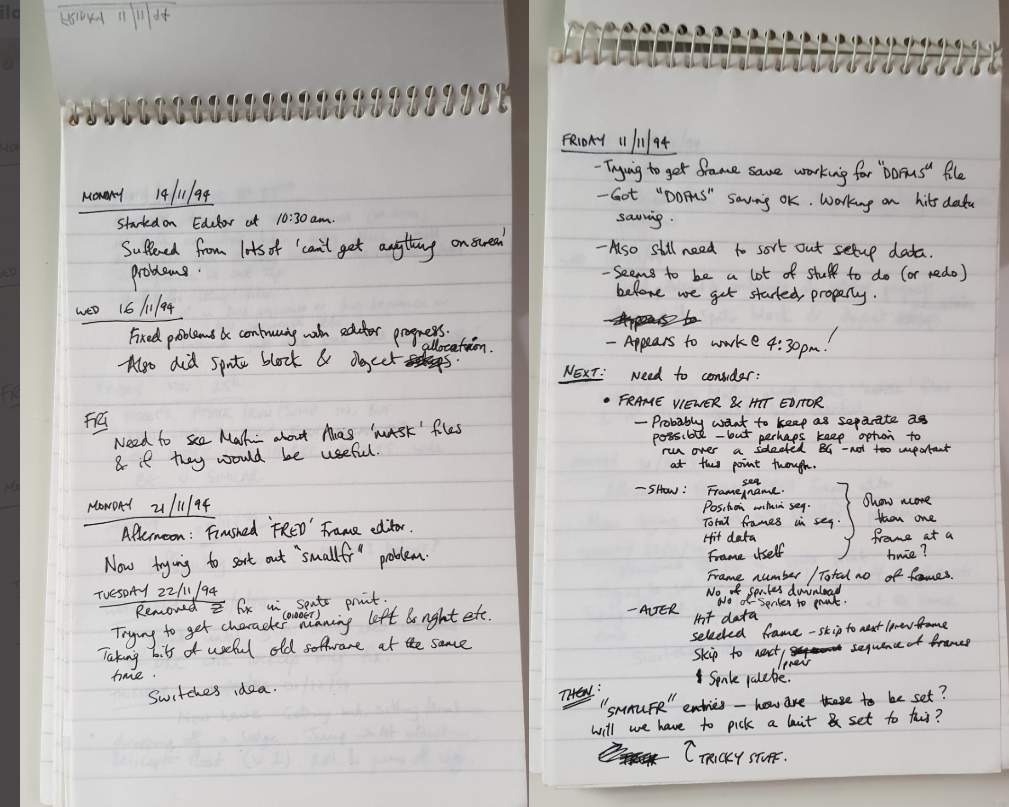 FRIDAY 11/11/94
MONDAY 14/11/94
Started on Editor at 10:30am.
Suffered from lots of 'can't get anything on screen'
problems.
WED 16/11/94
Fixed problems & continuing with editor progress.
Also did sprite block & object allocation.
FRI
Need to see Martin about Alias 'MASK' files
& if they would be useful.
MONDAY 21/11/94
Afternoon: Finished 'FRED' Frame editor.
Now trying to sort out "smallfr" problem.
TUESDAY 22/11/94
Removed Z fix in sprite print.
Trying to get character (DIDDET) running left & right etc.
Taking bits of useful old software at the same
time.
Switches idea.
FRIDAY 11/11/94
- Trying to get frame save working for "DDFMS" file
- Got "DDFMS" saving OK. Working on hits data
saving.
- Also still need to sort out setup data.
- Seems to be a lot of stuff to do (or redo)
before we get started, properly.
Appears to
- Appears to work @ 4:30pm!
NEXT: Need to consider:
• FRAME VIEWER & HIT EDITOR
- Probably want to keep as separate as
possible - but perhaps keep option to
run over a selected BG - not too important
at this point though.
- SHOW: Frame seq name.
Position within seq.
Total frames in seq.
Hit data
Frame itself
Show more
than one
frame at a
time?
Frame number / Total no of frames.
No of sprites download
No of Sprites to print.
- ALTER Hit data
selected frame - skip to next/prev frame
Skip to next/prev sequence of frames
Sprite palette.
THEN:
"SMALLFR" entries - how are these to be set?
Will we have to pick a limit & set to this?
↑ TRICKY STUFF.